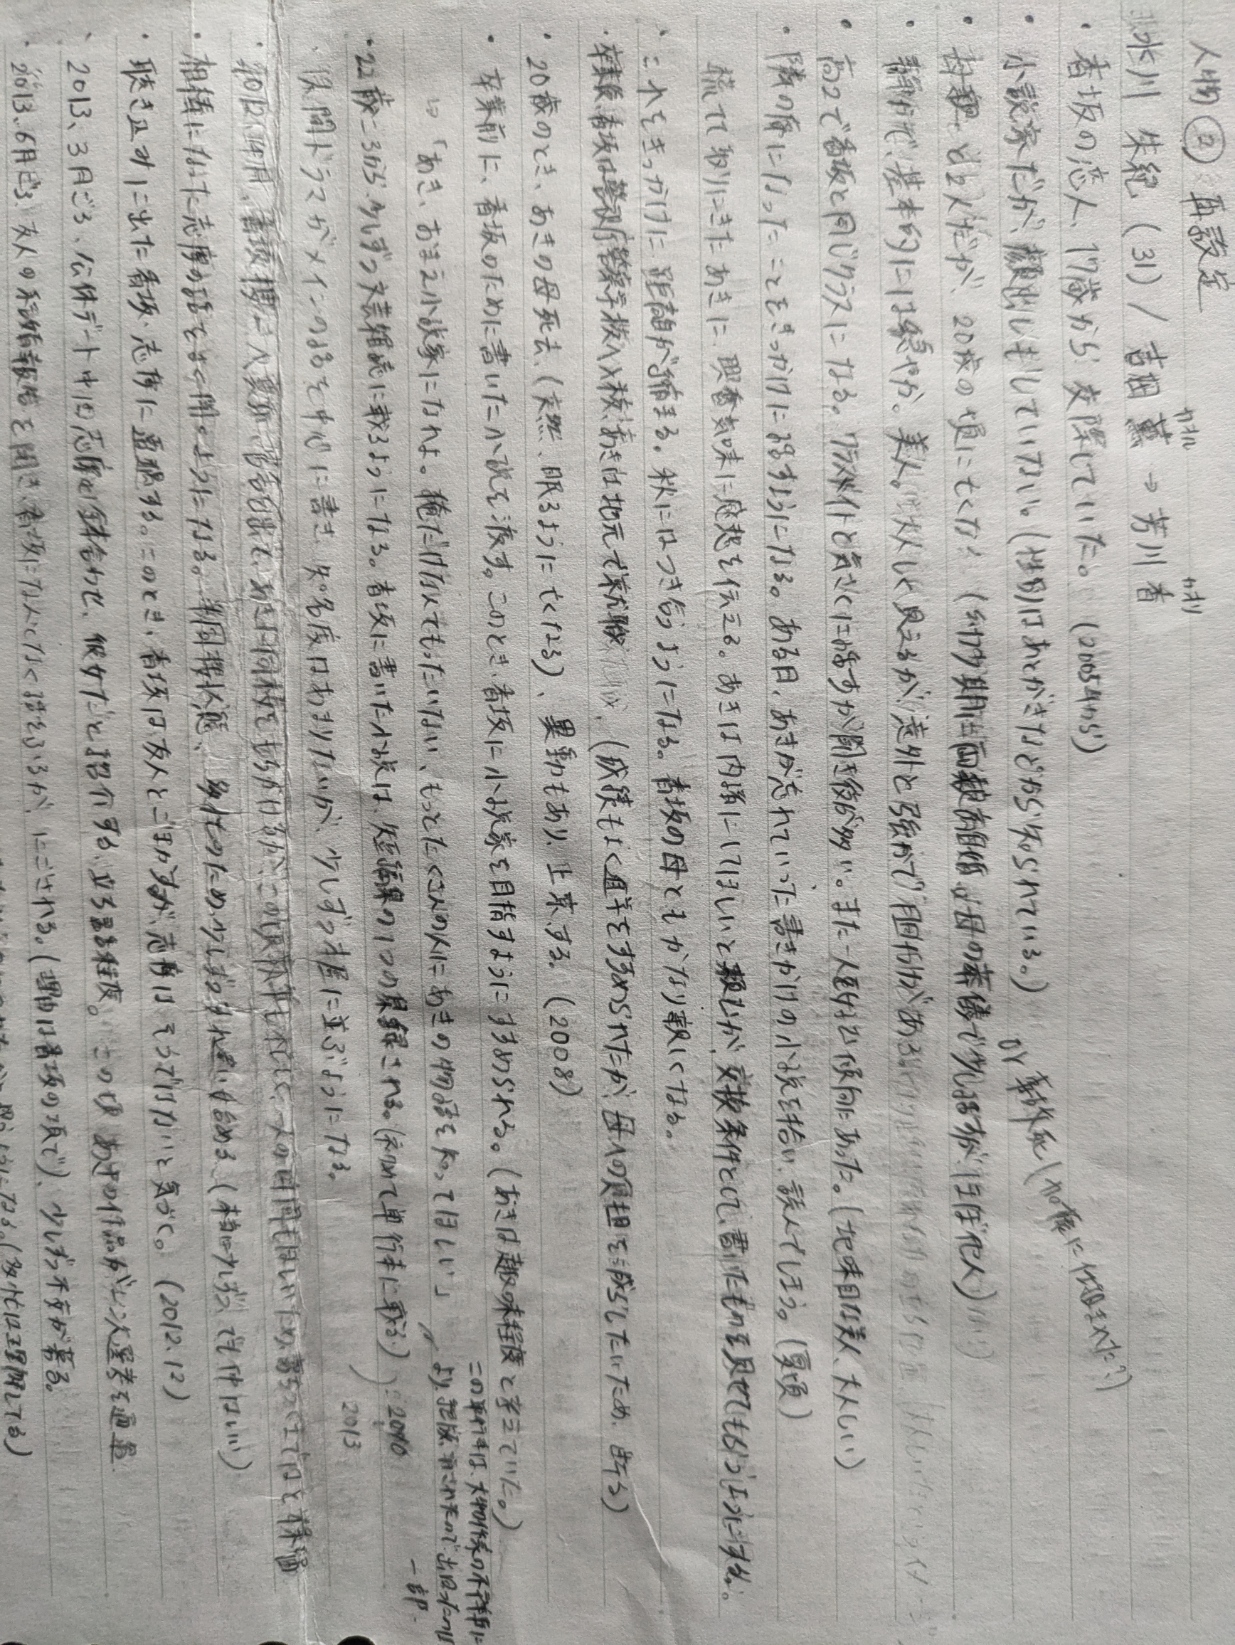 人物② 再設定
カオル カオリ
水川 朱紀 (31) / 吉田 薫 → 芳川 香
・香坂の恋人、17歳から交際していた。(2005年から)
・小説家だが、顔出しもしていない。(性別はあとがきなどから知られている。)
or 事故死(加藤に仕組まれた?)
・母親と2人だが、20歳の頃に亡くなる (幼少期に両親離婚。母の葬儀で少し話すがほぼ他人)
・静かで、基本的には穏やか。美人。大人しく見えるが、意外と強かで度胸がある。
・高2で香坂と同じクラスになる。クラスメイトと気さくに話すが聞き役が多い。また一人を好む傾向にあった。(地味目な美人、大人しい)
・隣の席になったことをきっかけに話すようになる。ある日、あきが忘れていった書きかけの小説を拾い、読んでしまう。(夏頃)
慌てて取りにきたあきに、興奮気味に感想を伝える。あきは内緒にしてほしいと頼むが、交換条件として、書いたものを見せてもらうようにする。
・これをきっかけに、距離が縮まる。秋にはつき合うようになる。香坂の母ともかなり親しくなる。
・卒業後、香坂は警視庁警察学校へ入校、あきは地元で就職 (成績もよく進学をすすめられたが、母への負担を減らしたいため、断る)
・20歳のとき、あきの母死去、(突然、眠るように亡くなる)、異動もあり、上京する。(2008)
・卒業前に、香坂のために書いた小説を渡す。このとき、香坂に小説家を目指すようにすすめられる。(あきは趣味程度と考えていた。)
この単行本は、大物作家の不祥事に
「あき、おまえ小説家になれよ。俺だけなんてもったいない、もっとたくさんの人にあきの物語を知ってほしい」
より、絶版、
一部
・22歳ころから、少しずつ文芸雑誌に載るようになる。香坂に書いた小説は、短編集の1つの集録される。(初めて単行本に載る) 2010
2013
・人間ドラマがメインの話を中心に書き、知名度はあまりないが、少しずつ本屋に並ぶようになる。
・2012、4月、香坂 異動、宿舎を出て、あきに同棲をもちかけるが、この頃執筆も忙しく、一人の時間もほしいため、落ちつくまではと保留
・相棒になった志摩の話をよく聞くようになる。半同棲状態、多忙のため、少しずつすれ違い始める (本当に少しずつ、でも仲はいい)
・聴き込みに出た香坂・志摩に遭遇する。このとき、香坂は友人とごまかすが、志摩はそうではないと気づく。(2012.12)
・2013、3月ごろ、公休デート中に志摩と鉢合わせ、彼女だと紹介する、立ち話程度。この頃 あきの作品が二次選考を通過
・2013、6月ごろ、友人の結婚報告を聞き、香坂になんとなく話をふるが、にごされる。(理由は香坂の項で)、少しずつ不安が募る。
(多忙は理解してる)